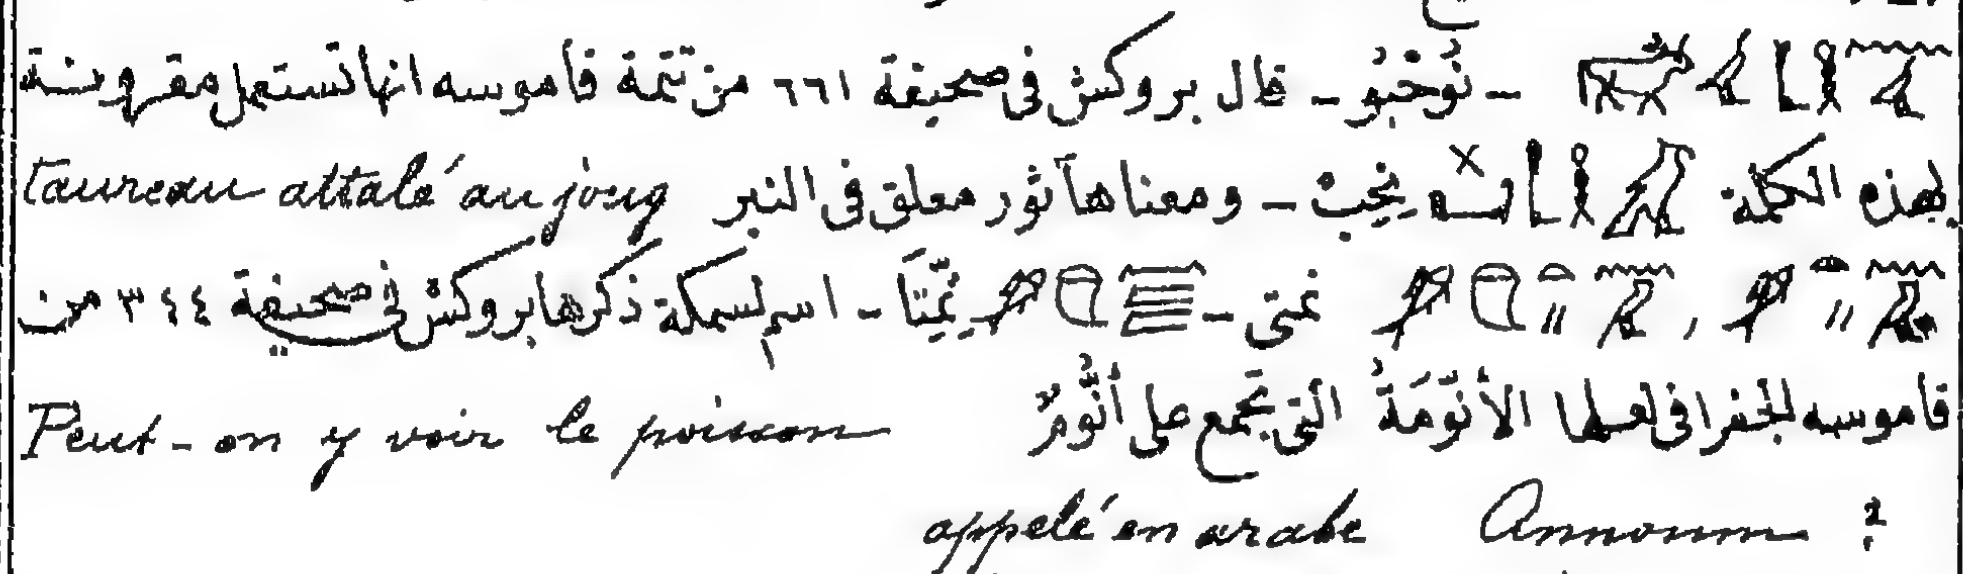 – نُوحْبُو – قال بروكش فى صحيفة ٦٦١ من تتمة قاموسه انها تستعمل مقرونة
بهذه الكلمة نِحِبْ – ومعناها ثور معلق فى النير taureau attalé au joug
نمتى – نِمِتَا – اسم لسمكة ذكرها بروكش فى صحيفة ٣٤٤ من
قاموسه الجغرافى لعلها الأنّومَةُ التى تجمع على أنُّومٌ Peut-on y voir le poisson
appelé en arabe Annoum ?